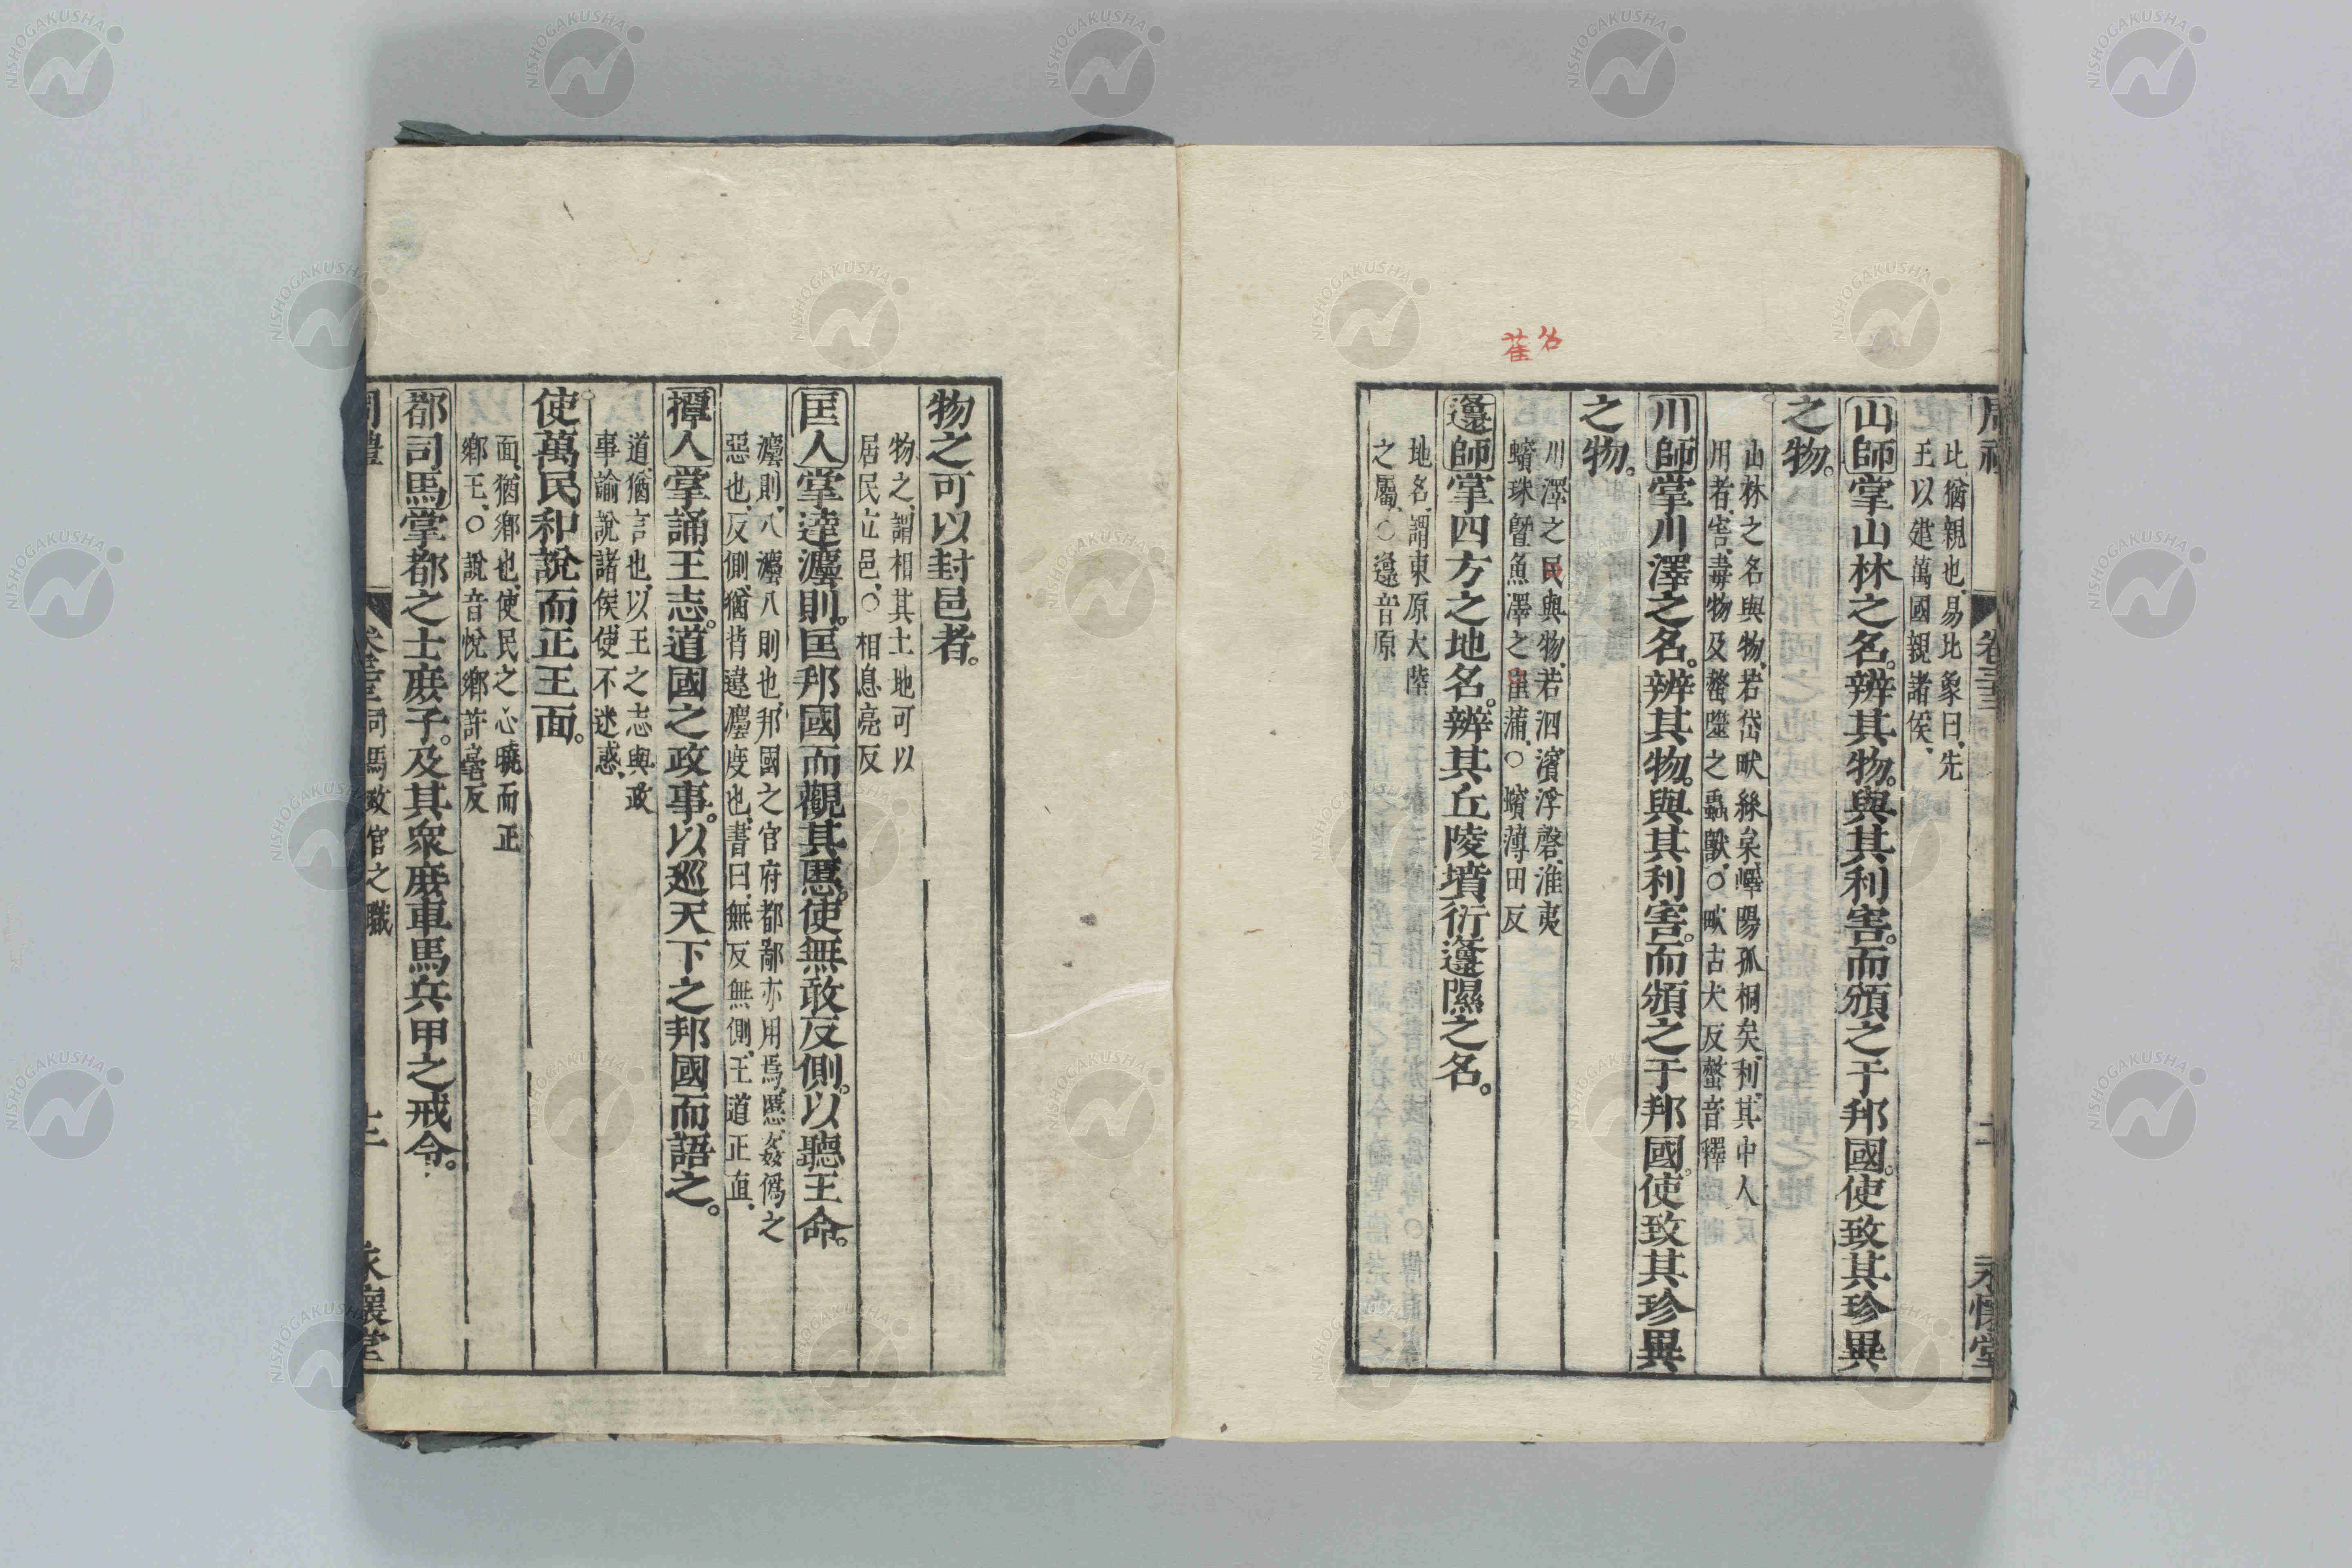 名
萑
比猶親也、易比象曰、先
王以建萬國親諸侯、
山師掌山林之名。辨其物。與其利害。而頒之于邦國。使致其珍異
之物。
山林之名與物、若岱畎絲枲、嶧陽孤桐矣、利、其中人
用者、害、毒物及螫噬之蟲獸、○畎古犬反螫音釋
川師掌川澤之名。辨其物。與其利害。而頒之于邦國。使致其珍異
之物。
川澤之民與物、若泗濱浮磬、淮夷
蠙珠曁魚澤之雚蒲、○蠙薄田反
邍師掌四方之地名。辨其丘陵墳衍邍隰之名。
地名、謂東原大陸
之屬、○邍音原
物之可以封邑者。
物之、謂相其土地可以
居民立邑、○相息亮反
匡人掌達灋則。匡邦國而觀其慝。使無敢反側。以聽王命。
灋則、八灋八則也、邦國之官府都鄙亦用焉、慝、姦僞之
惡也、反側、猶背違灋度也、書曰、無反無側、王道正直、
撢人掌誦王志。道國之政事。以巡天下之邦國而語之。
道、猶言也、以王之志與政
事諭說諸侯、使不迷惑、
使萬民和說而正王面。
面、猶鄉也、使民之心曉而正
鄉王、○說音悅鄉許亮反
都司馬掌都之士庶子。及其衆庶車馬兵甲之戒令。
司馬政官之職
永懷堂